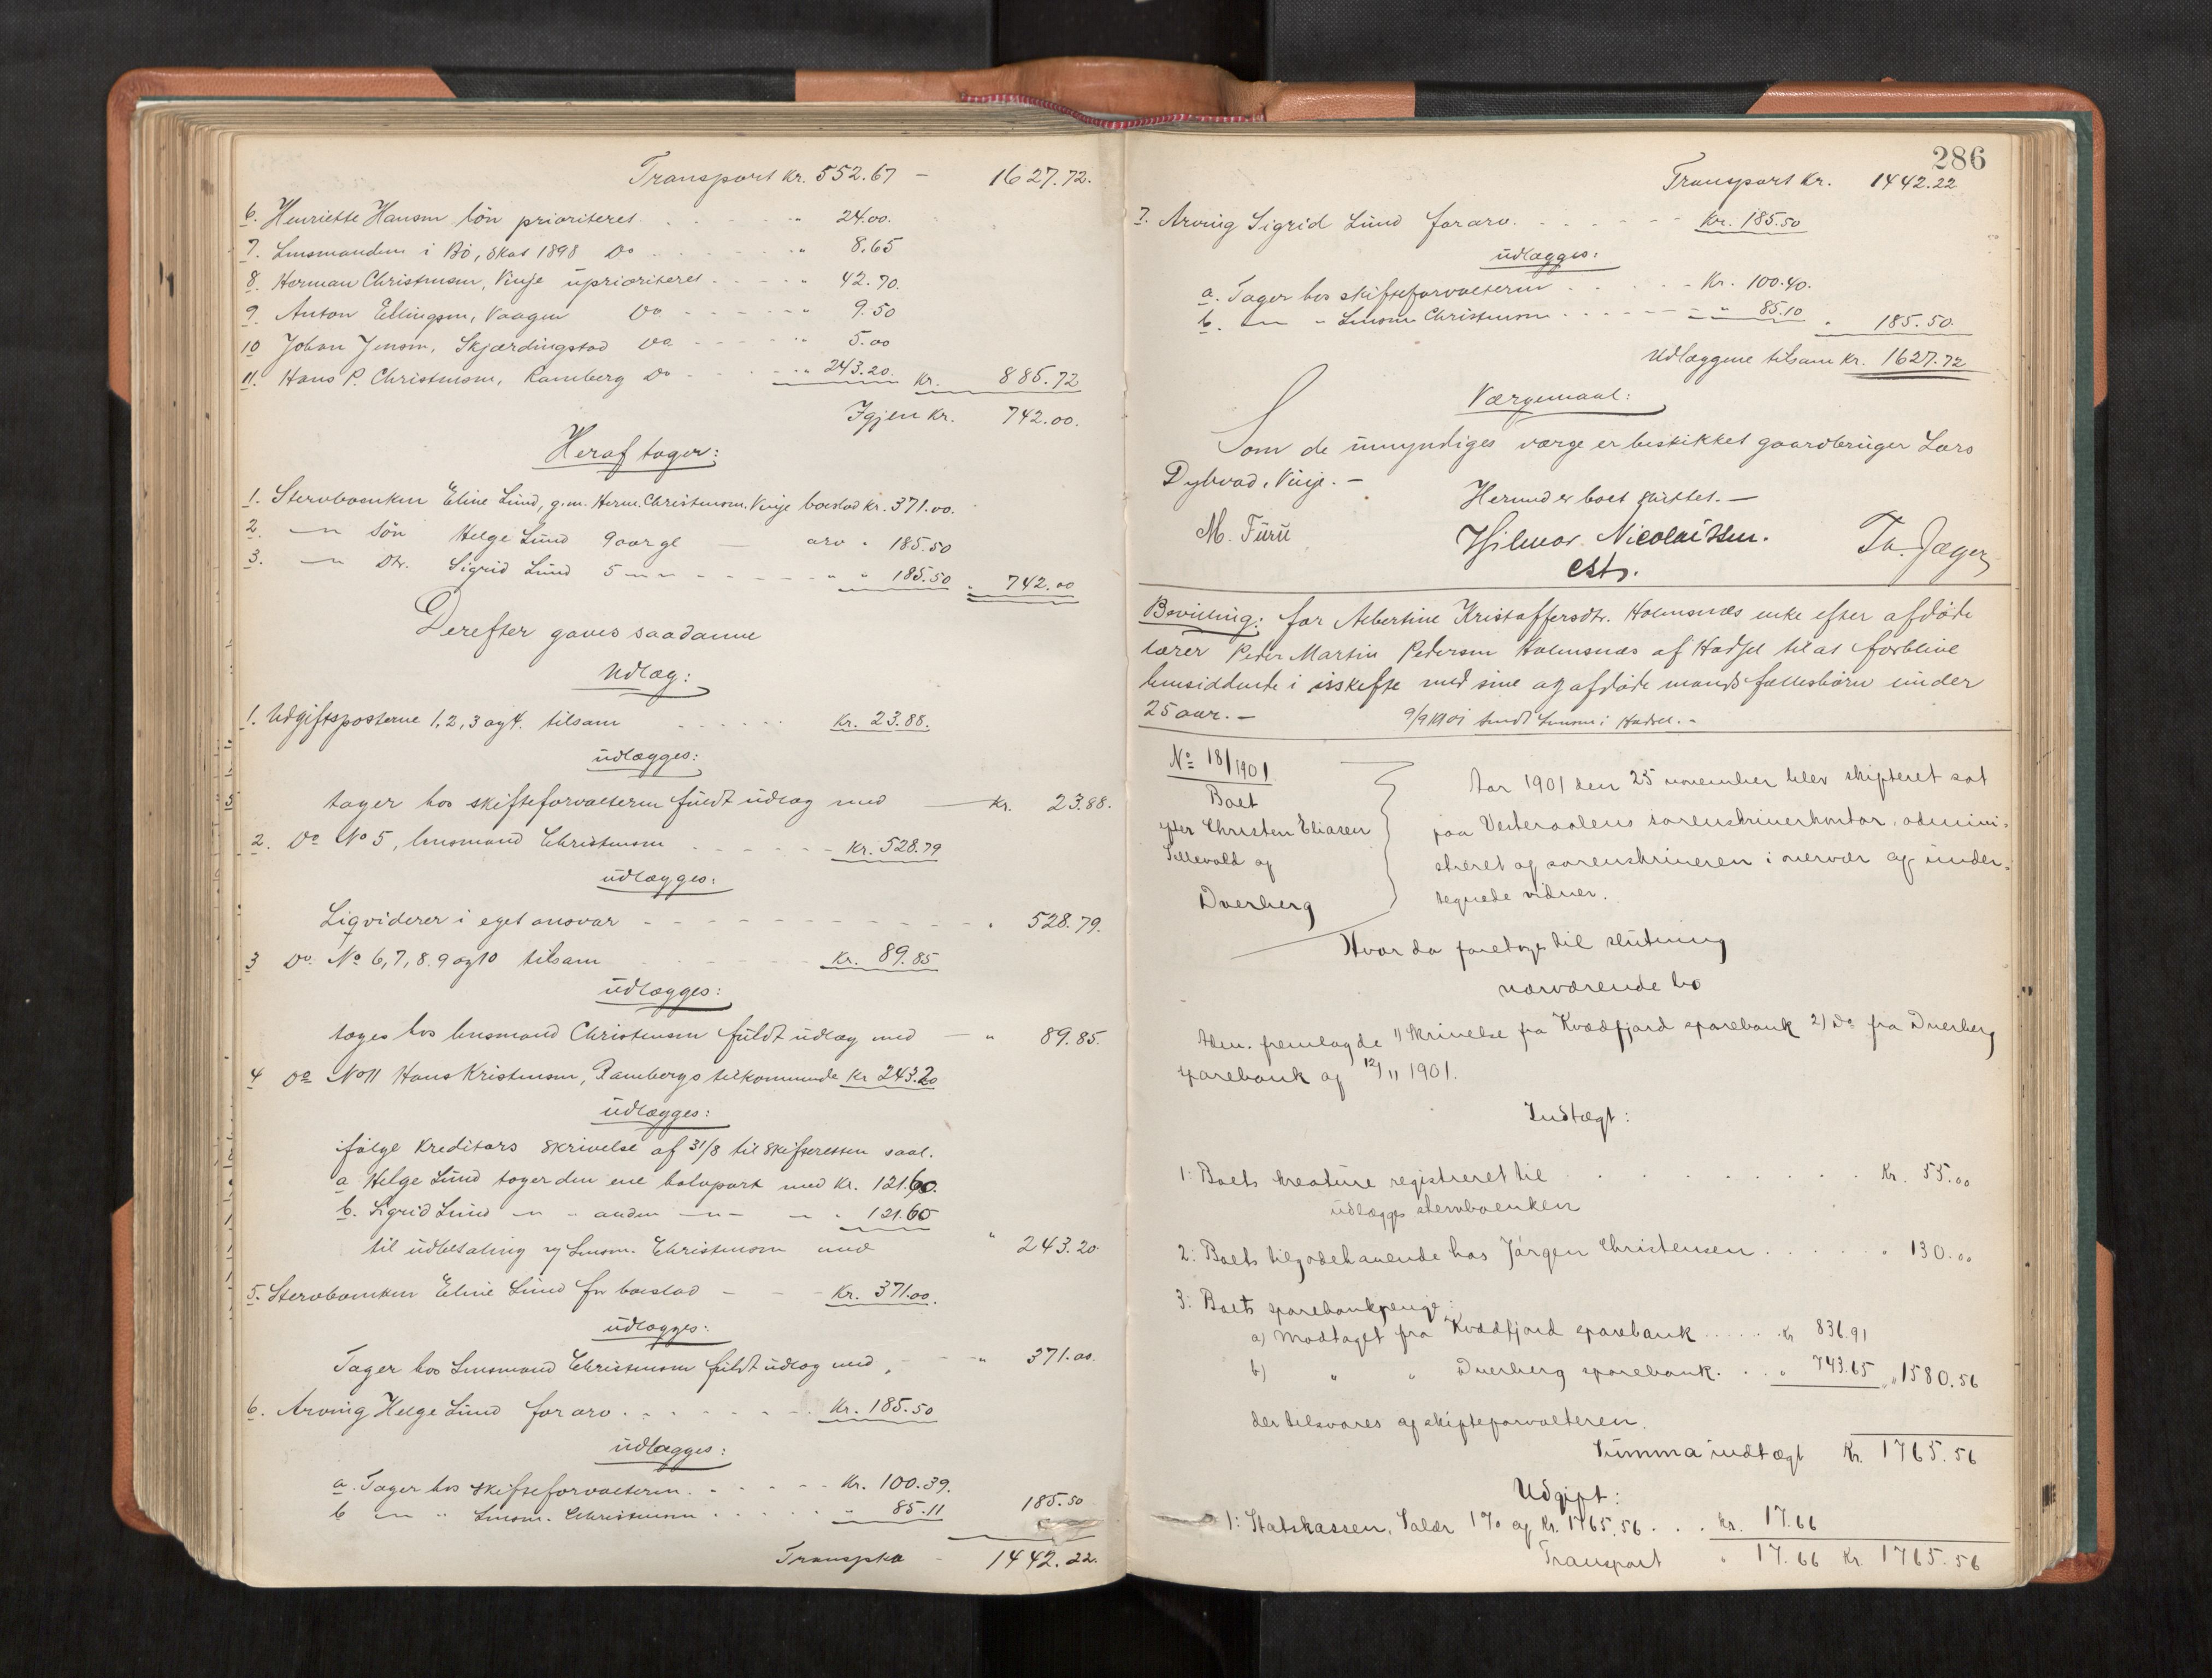 Transport Kr. 552.67 - 1627.72.
6. Henriette Hansen lön prioriteret. " 24.00.
7. Lensmanden i Bö, skat 1898 Do " 8.65
8. Herman Christensen, Vinje uprioriteret " 42.70.
9. Anton Ellingsen, Vaagen Do " 9.50
10 Johan Jensen, Skjærdingstad Do " 5.00
11. Hans P. Christensen, Ramberg Do " 243.20. Kr. 885.72
Igjen Kr. 742.00.
Heraf tager:
1. Stervboenken Eline Lund, g.m. Herm. Christensen. Vinje boeslod Kr. 371.00.
2. —"— Sön Helge Lund 9 aar gl — arv " 185.50
3. —"— Dtr. Sigrid Lund 5 —"— " " 185.50 " 742.00
Derefter gaves saadanne
Udlæg:
1. Udgiftsposterne 1, 2, 3 og 4. tilsam Kr. 23.88.
udlægges:
tager hos skifteforvalteren fuldt udlæg med — Kr. 23.88.
2. Do No 5, lensmand Christensen Kr. 528.79
udlægges:
Liqviderer i eget ansvar " 528.79.
3 Do. No 6, 7, 8. 9 og 10 tilsam Kr. 89.85
udlægges:
tages hos lensmand Christensen fuldt udlæg med — " 89.85.
4 Do No 11 Hans Kristensen, Rambergs tilkommende Kr 243.20
udlægges:
ifölge kreditors skrivelse af 31/8 til skifteretten saal.
a Helge Lund tager den ene halvpart med Kr. 121.60.
b. Sigrid Lund —"— " anden —"— — " 121.60
til udbetaling af Lensm. Christensen med " 243.20.
5. Stervboenken Eline Lund for boeslod - Kr. 371.00.
udlægges:
Tager hos Lensmand Christensen fuldt udlæg med " 371.00.
6. Arving Helge Lund for arv. Kr. 185.50
udlægges:
a. Tager hos skifteforvalteren. Kr. 100.39.
b —"— " Lensm. Christensen " 85.11 185.50
Transport - 1442.22.
286
Transport Kr. 1442.22
7. Arving Sigrid Lund for arv. Kr. 185.50
udlægges:
a. Tager hos skifteforvalteren Kr. 100.40.
b. —"— " Lensm Christensen " 85.10 " 185.50.
Udlæggene tilsam Kr. 1627.72
Værgemaal:
Som de umyndiges værge er beskikket gaardbruger Lars
Dybvad, Vinje. -
Hermed er boet sluttet. —
M. Furu Hilmar Nicolaissen. Th. Jæger
cst.
Bevilling: for Albertine Kristoffersdtr. Holmsnæs enke efter afdöde
lærer Peder Martin Pedersen Holmsnæs af Hadsel til at forblive
hensiddende i uskifte med sine og afdöde mands fællesbörn under
25 aar. — 9/9 1901 sendt Lensm i Hadsel. -
No 18/1901
Boet
efter Christen Eliasen
Sellevold af
Dverberg
Aar 1901 den 25 november blev skifteret sat
paa Vesteraalens sorenskriverkontor, admini-
streret af sorenskriveren i overvær af under-
tegnede vidner.
Hvor da foretoges til slutning
nærværende bo
Adm. fremlagde 1) Skrivelse fra Kvædfjord sparebank 2) Do fra Dverberg
sparebank af 12/11 1901.
Indtægt:
1: Boets kreature registreret til Kr. 55.00
udlægges stervboenken
2: Boets tilgodehavende hos Jörgen Christensen " 130.00
3: Boets sparebankpenge:
a) Modtaget fra Kvædfjord sparebank Kr 836.91
b) " " Dverberg sparebank. " 743.65 " 1580.56
der tilsvares af skifteforvalteren.
Summa indtægt Kr. 1765.56
Udgift:
1: Statskassen, Salær 1 % af Kr. 1765.56 Kr. 17.66
Transport " 17.66 Kr. 1765.56